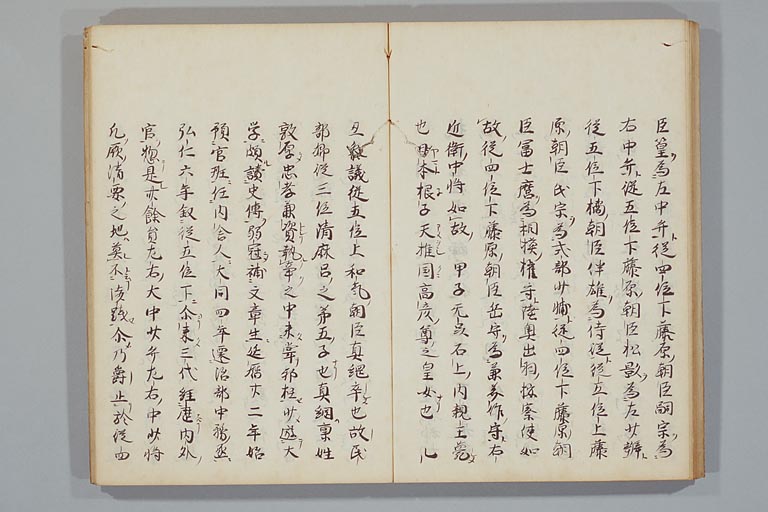 臣篁為左中弁従四位下藤原朝臣嗣宗為
右中弁従五位下藤原朝臣松影為左少辨
従五位下橘朝臣伴雄為侍従従五位上藤
原朝臣氏宗為式部少輔従四位下藤原朝
臣富士麿為相模権守陸奥出羽按察使如
故従四位下藤原朝臣岳守為兼美作守右
近衛中将如故甲子无品石上内親王薨
也日本根子天推国高彦尊之皇女也 乙
丑 議従五位上和気朝臣真綱卒也故民
部卿従三位清麻呂之第五子也真綱禀性
敦厚忠孝兼資執 之中未 邪枉少遊大
学頗讀史傳弱冠補文章生延暦廿二年始
預官班任内舎人大同四年遷治部中務丞
弘仁六年叙従五位下 来三代経歴内外
官惣是 餘 左右大中少弁左右中少将
凡厥清要之地莫不 践 乃爵止於従四